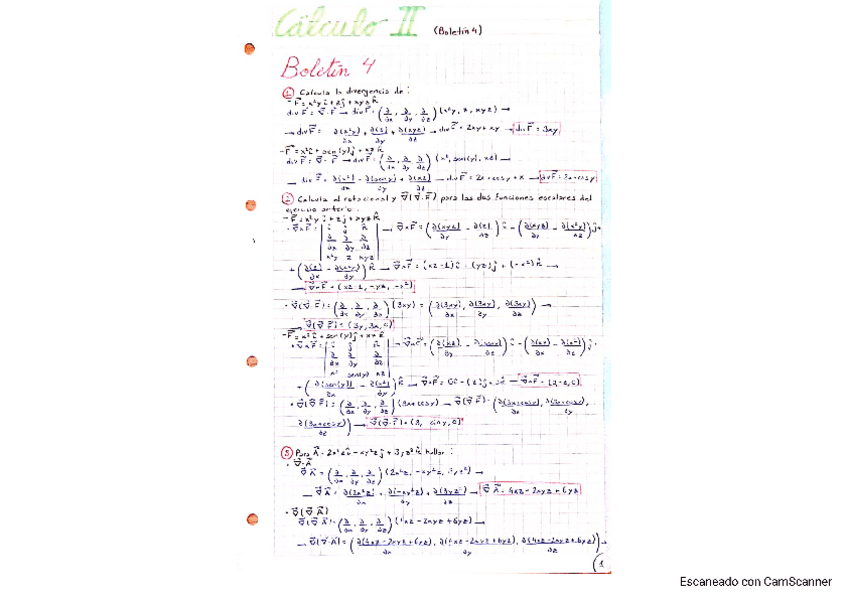 Cálculo II (Boletín 4)
Boletín 4
① Calcula la divergencia de:
- F⃗ = x²y î + z ĵ + xyz k̂
div F⃗ = ∇⃗ · F⃗ → div F⃗ = (∂/∂x, ∂/∂y, ∂/∂z) (x²y, z, xyz) →
→ div F⃗ = ∂(x²y)/∂x + ∂(z)/∂y + ∂(xyz)/∂z → div F⃗ = 2xy + xy → div F⃗ = 3xy
- F⃗ = x² î + sen(y) ĵ + xz k̂
div F⃗ = ∇⃗ · F⃗ → div F⃗ = (∂/∂x, ∂/∂y, ∂/∂z) (x², sen(y), xz) →
→ div F⃗ = ∂(x²)/∂x + ∂(sen(y))/∂y + ∂(xz)/∂z → div F⃗ = 2x + cosy + x → div F⃗ = 3x + cosy
② Calcula el rotacional y ∇⃗(∇⃗·F⃗) para las dos funciones escalares del
ejercicio anterior.
- F⃗ = x²y î + z ĵ + xyz k̂
· ∇⃗xF⃗ = | î ĵ k̂ | → ∇⃗xF⃗ =
∂/∂x ∂/∂y ∂/∂z
x²y z xyz
→ ∇⃗xF⃗ = (xz-1) î - (yz) ĵ + (-x²) k̂ →
→ ∇⃗xF⃗ = (xz-1, -yz, -x²)
· ∇⃗(∇⃗·F⃗) = (∂/∂x, ∂/∂y, ∂/∂z) (3xy) = (∂(3xy)/∂x, ∂(3xy)/∂y, ∂(3xy)/∂z) →
∇⃗(∇⃗·F⃗) = (3y, 3x, 0)
- F⃗ = x² î + sen(y) ĵ + xz k̂
· ∇⃗xF⃗ = | î ĵ k̂ |
∂/∂x ∂/∂y ∂/∂z
x² sen(y) xz
· ∇⃗(∇⃗·F⃗) = (∂/∂x, ∂/∂y, ∂/∂z) (3x+cosy) → ∇⃗(∇⃗·F⃗) =
∂(3x+cosy)/∂z) →
⑤ Para A⃗ = 2x²z î - xy²z ĵ + 3yz² k̂ hallar:
· ∇⃗·A⃗
∇⃗·A⃗ = (∂/∂x, ∂/∂y, ∂/∂z) (2x²z, -xy²z, 3yz²) →
→ ∇⃗·A⃗ = ∂(2x²z)/∂x + ∂(-xy²z)/∂y + ∂(3yz²)/∂z → ∇⃗·A⃗ = 4xz - 2xyz + 6yz
· ∇⃗(∇⃗·A⃗)
∇⃗(∇⃗·A⃗) = (∂/∂x, ∂/∂y, ∂/∂z) (4xz - 2xyz + 6yz) →
→ ∇⃗(∇⃗·A⃗) = (∂(4xz-2xyz+6yz)/∂x, ∂(4xz-2xyz+6yz)/∂y, ∂(4xz-2xyz+6yz)/∂z) →
1
Escaneado con CamScanner